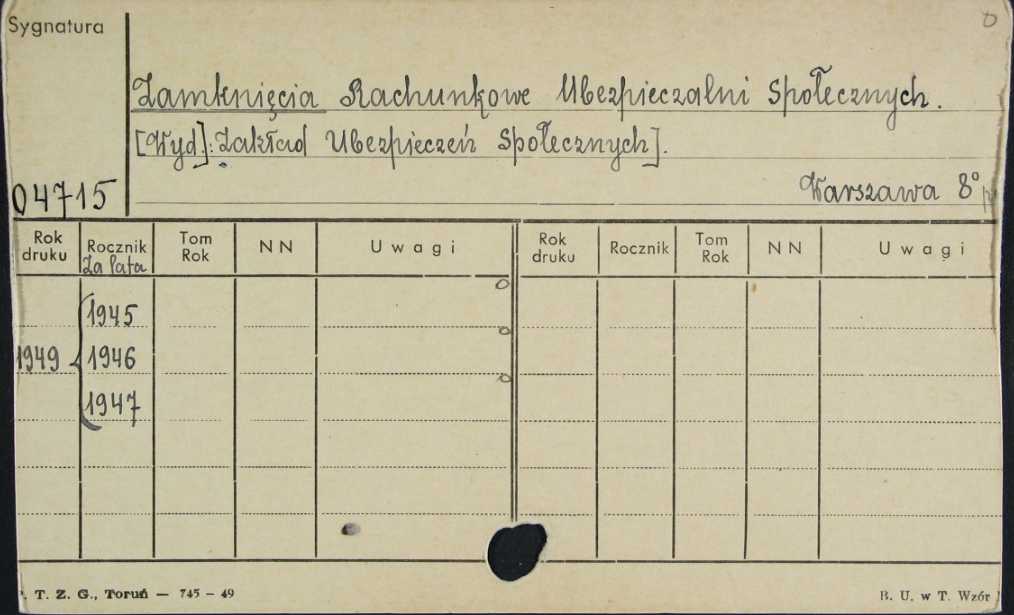 Sygnatura
Zamknięcia Rachunkowe Ubezpieczalni Społecznych.
[Wyd.]: Zakład Ubezpieczeń Społecznych].
04715
Warszawa 8°
Rok druku Rocznik Za lata Tom Rok NN Uwagi Rok druku Rocznik Tom Rok NN Uwagi
1945
1949 { 1946
1947
T. Z. G., Toruń — 745 - 49
B. U. w T. Wzór